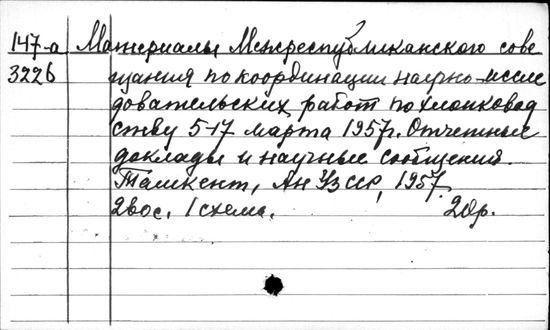 147-а Материалы Межреспубликанского сове
3226 щания по координации научно-иссле
довательских работ по хлопковод
ству 5-17 марта 1957г. Отчетные
доклады и научные сообщения.
Ташкент, Ан УзССР, 1957.
1 схема. 20р.